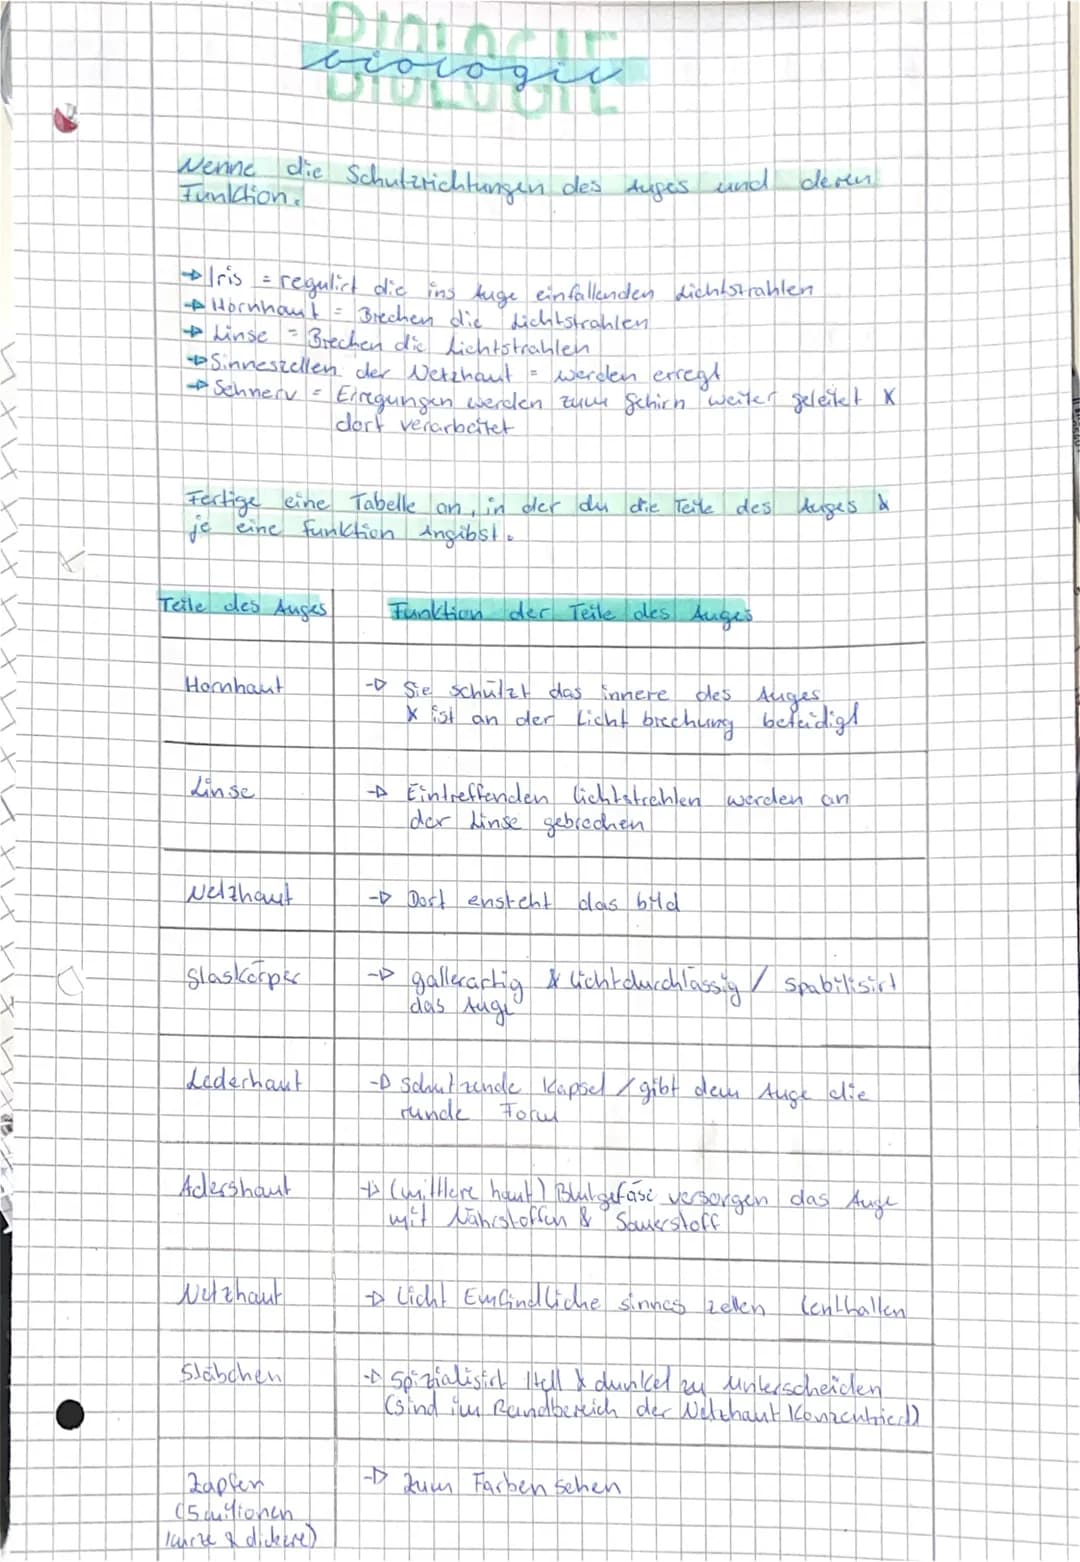 BIOLOGIE
biologie
BIOLOGIE
Nenne die Schutzrichtungen des Auges und deren
Funktion.
→ Iris = regulirt die ins Auge einfallenden Lichtstrahlen
→ Hornhaut = Brechen die Lichtstrahlen
→ Linse = Brechen die Lichtstrahlen
→ Sinneszellen der Netzhaut = werden erregt
→ Sehnerv = Erregungen werden zum Gehirn weiter geleitet &
dort verarbeitet
Fertige eine Tabelle an, in der du die Teile des Auges &
je eine funktion Angibst.
Teile des Auges Funktion der Teile des Auges
Hornhaut → Sie schützt das innere des Auges
& ist an der Licht brechung beteidigt
Linse → Eintreffenden lichtstrahlen werden an
der Linse gebrochen
Netzhaut → Dort ensteht das bild
Glaskörper → gallerartig & lichtdurchlässig / spabilisirt
das Auge
Lederhaut → Schutzende Kapsel / gibt dem Auge die
runde Form
Adershaut → (mittlere haut) Blutgefäse versorgen das Auge
mit Nährstoffen & Sauerstoff
Netzhaut → Licht Emfindliche sinnes zellen (enthalten
Stäbchen → Spizialisirt Hell & dunkel zu unterscheiden
(sind im Randbereich der Netzhaut Konzentriert)
Zapfen → Zum Farben sehen
(5 millionen
kurze & dickere)